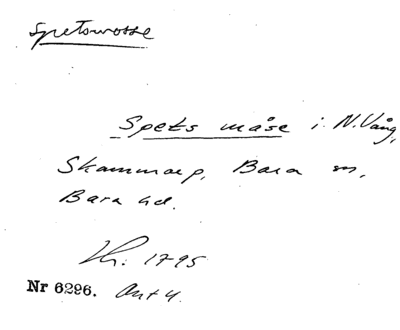 Spetsmosse
Spets måse i N. Vång,
Skammarp, Bara sn,
Bara hd.
Kr: 1795
Nr 6296. Ant 4.